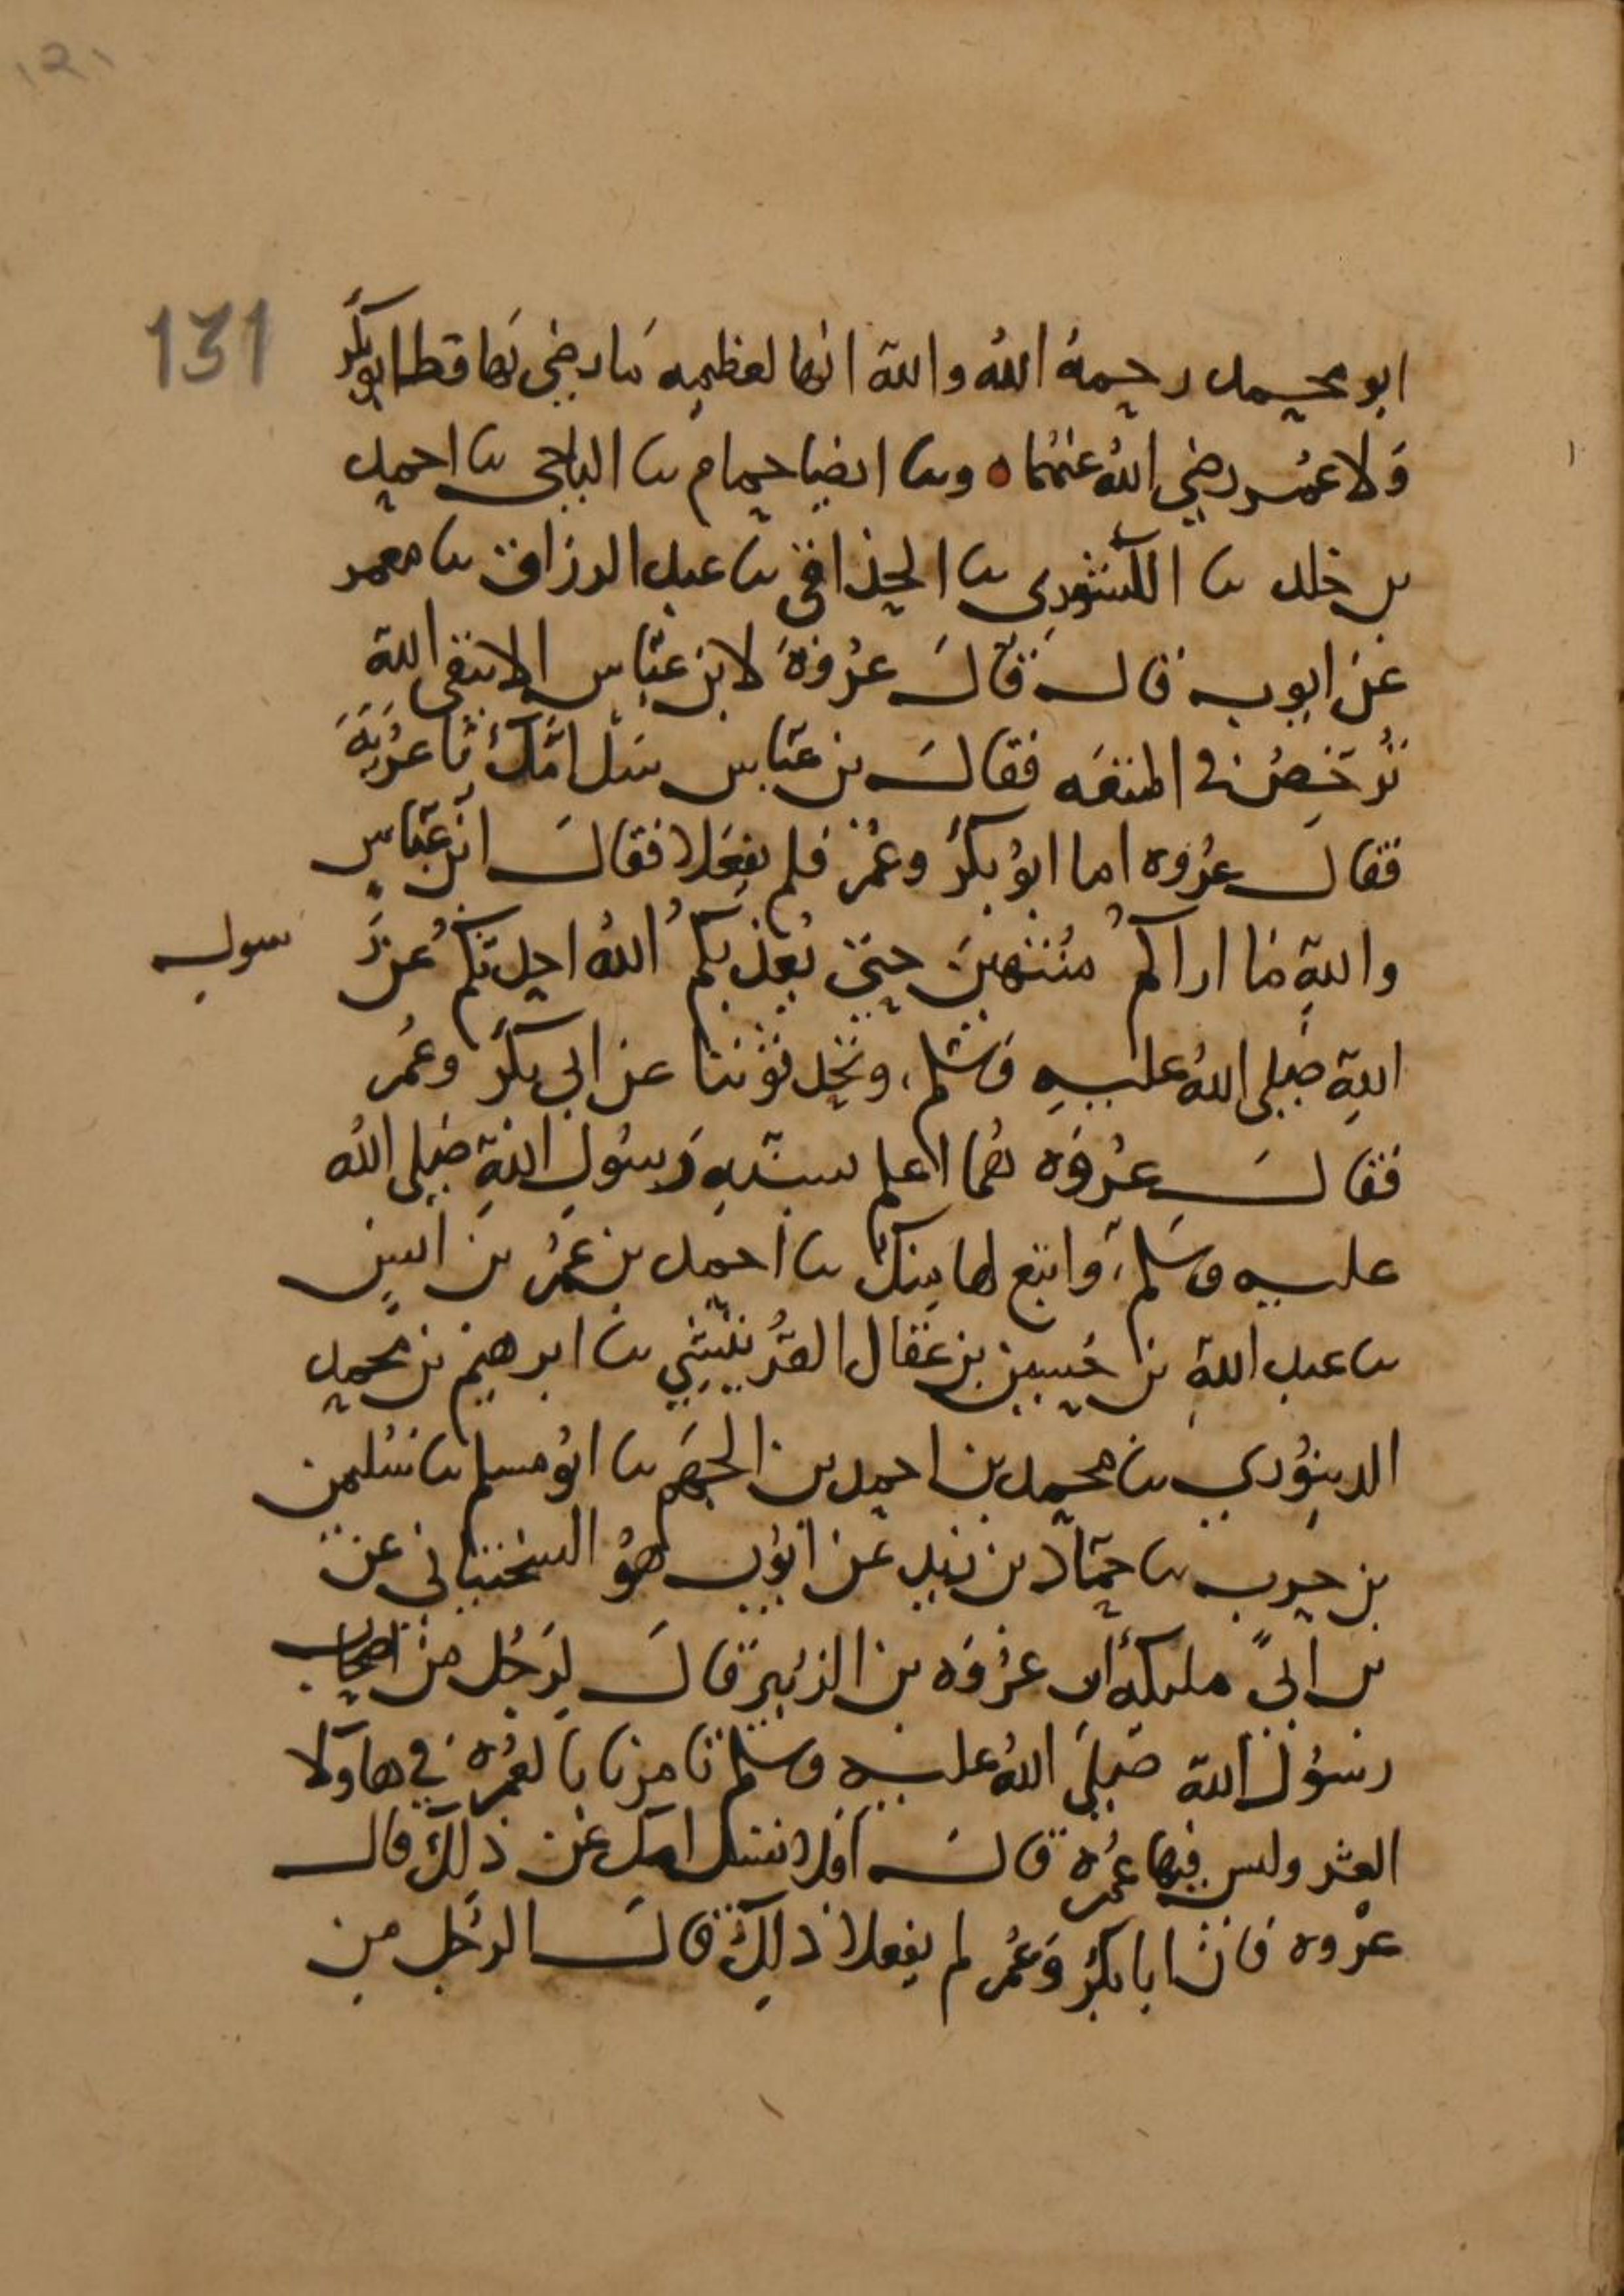 ١٢١
131
ابو محمد رحمه الله والله انها لعظيمه ما رضى بها قط ابو بكر
ولا عمر رضي الله عنهما ه وىا ايضا حمام ىا الباجى ىا احمد
بن خلد ىا الكشورى ىا الحذاقى ىا عبد الرزاق ىا معمر
عن ايوب قال قال عروة لابن عباس الا تتقى الله
تُرخِصُ في المتعه فقال بن عباس سل امك يا عُرَيَّةَ
فقال عروه اما ابو بكر وعمر فلم يفعلا فقال ابن عباس
والله ما اراكم منتهين حتى يعذبكم الله احدثكم عن ر
سول
الله صلى الله عليه وسلم، وتحدثوننا عن ابي بكر وعمر
فقال عروه لهما اعلم بسنة رسول الله صلى الله
عليه وسلم، واتبع لها منك ىا احمد بن عمر بن انس
ىا عبد الله بن حسين بن عقال القرينشي ىا ابرهيم بن محمد
الدينوري ىا محمد بن احمد بن الجهم ىا ابو مسلم ىا سليمن
بن حرب ىا حماد بن زيد عن ايوب هو السختياني عن
بن ابي مليكة ان عروه بن الزبير قال لرجل من اصحاب
رسول الله صلى الله عليه وسلم تامرنا بالعمره في هاولا
العشر وليس فيها عمره قال افلا تسل امك عن ذلك قال
عروه فان ابا بكر وعمر لم يفعلا ذلك قال الرجل من